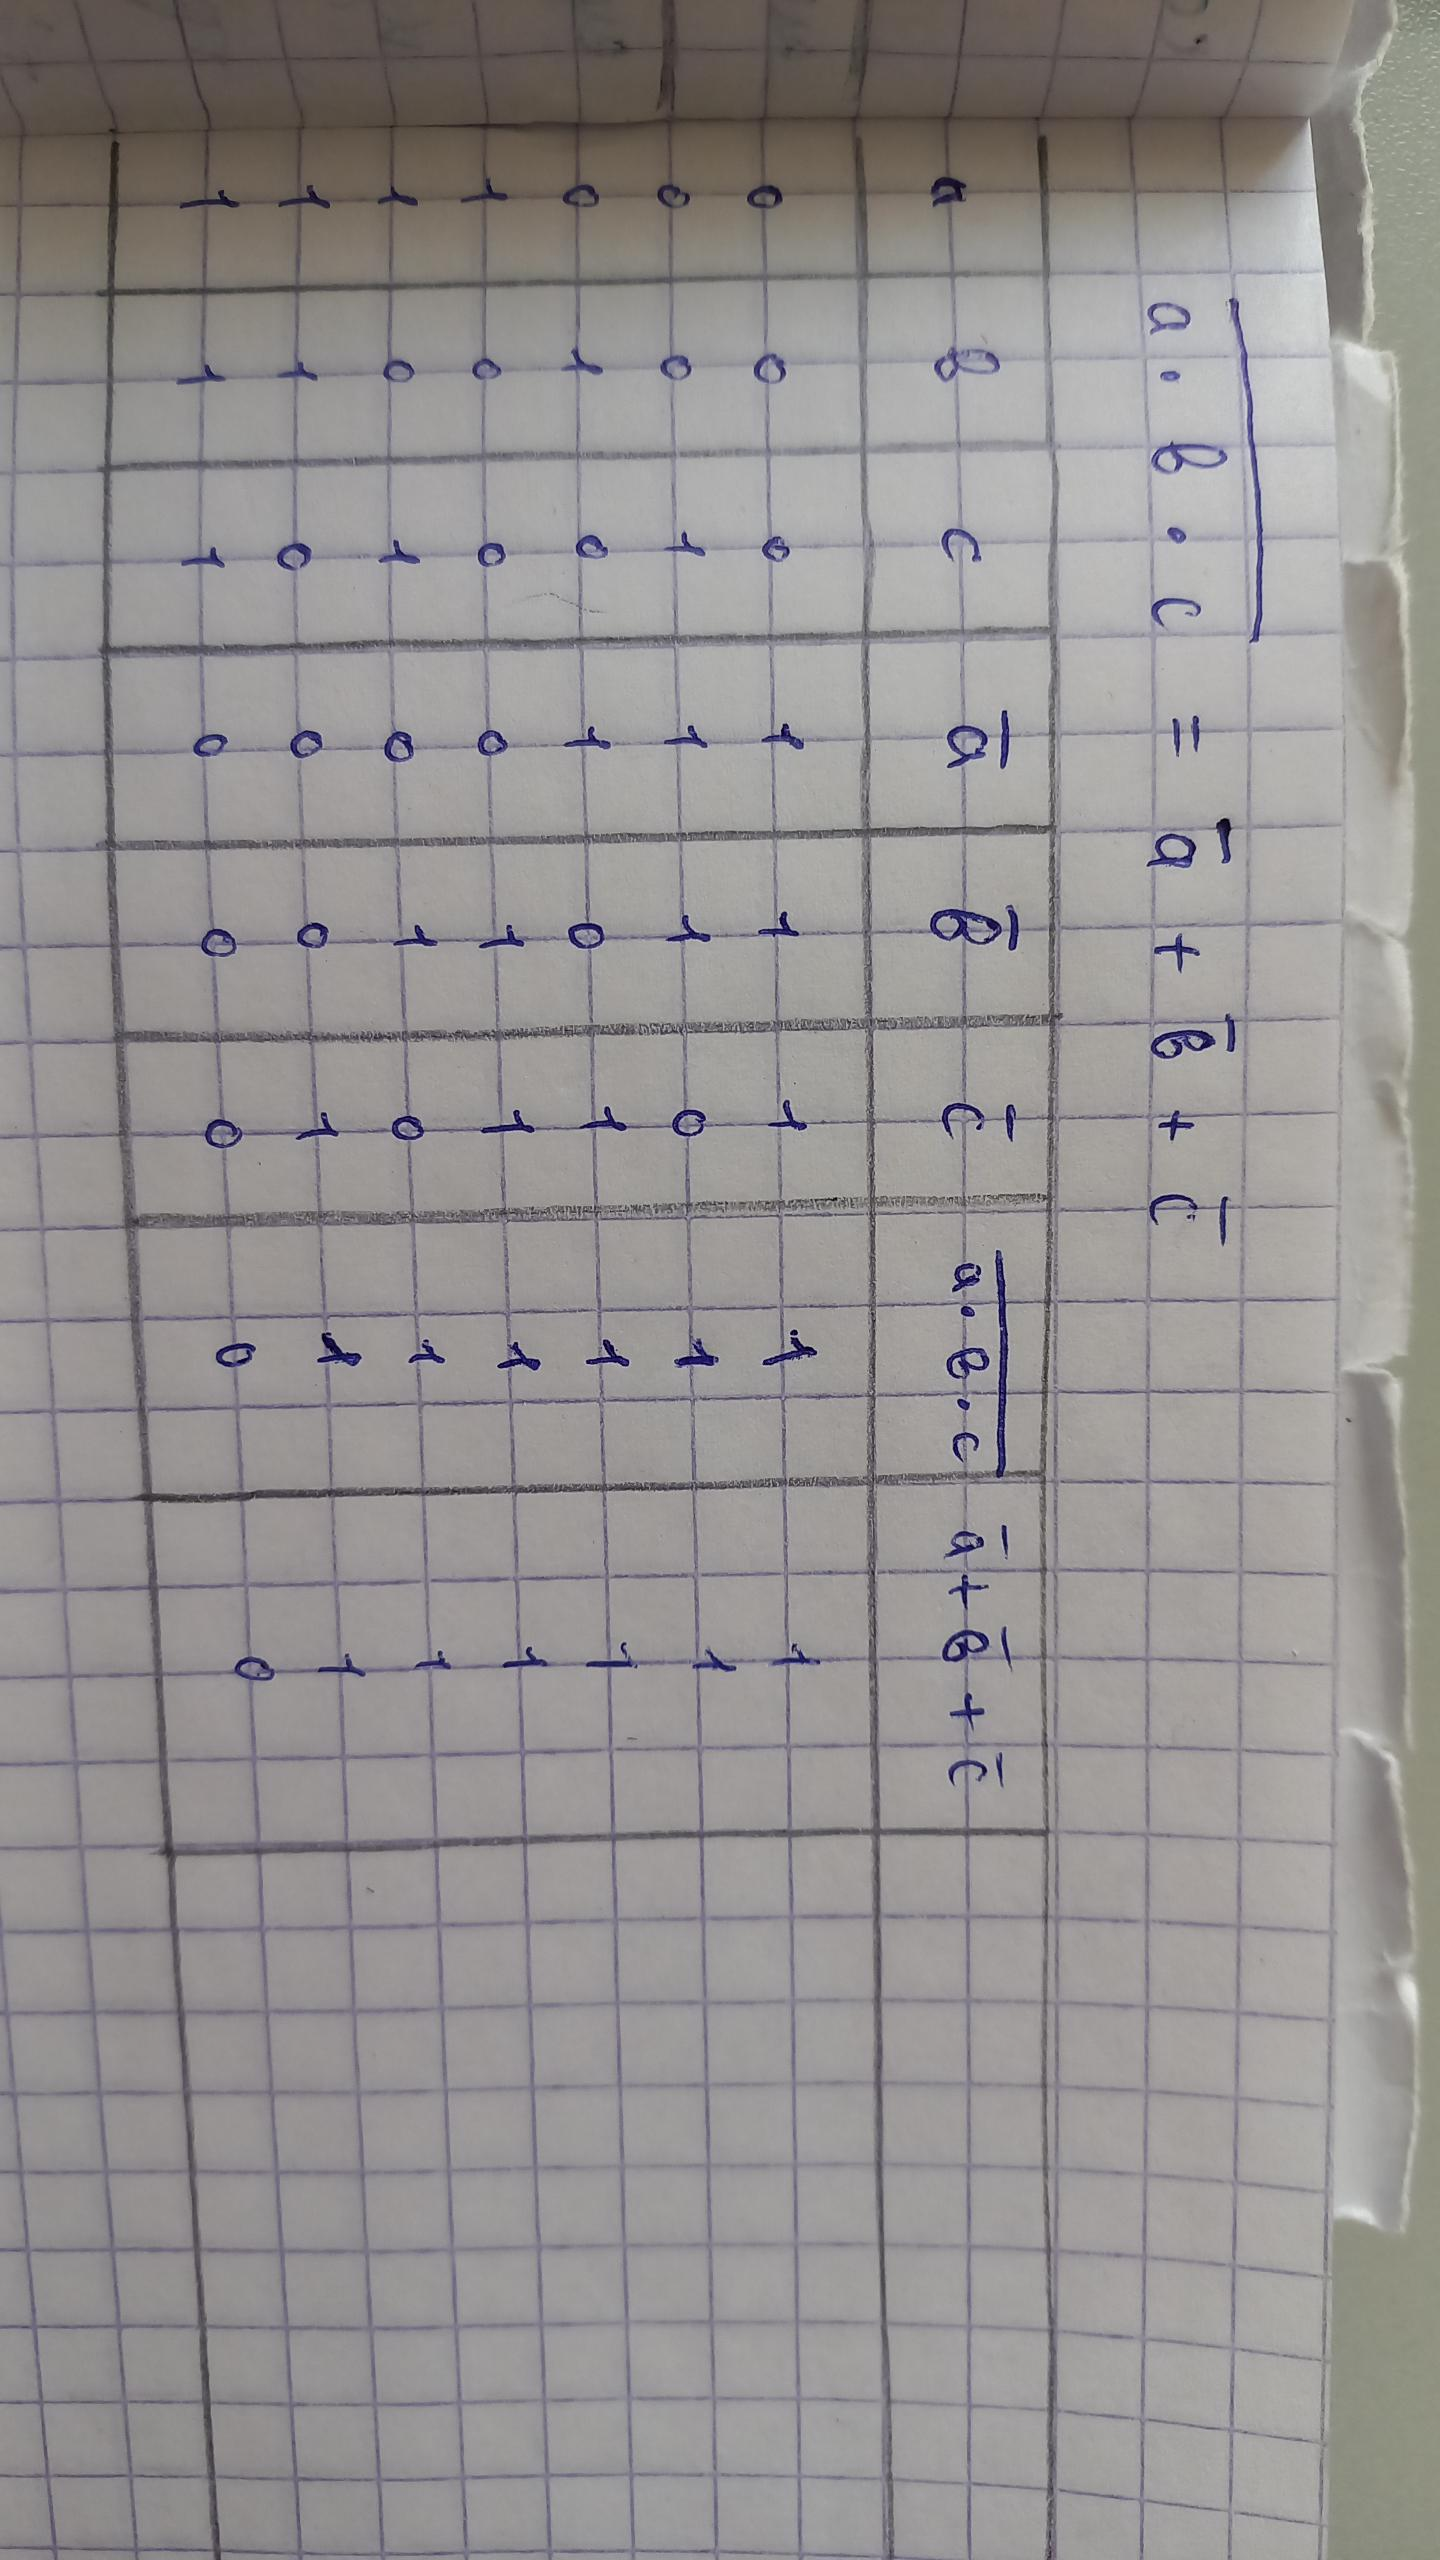 a̅ ̅·̅ ̅b̅ ̅·̅ ̅c̅ = a̅ + b̅ + c̅
a b c a̅ b̅ c̅ a̅·̅b̅·̅c̅ a̅ + b̅ + c̅
0 0 0 1 1 1 1 1
0 0 1 1 1 0 1 1
0 1 0 1 0 1 1 1
1 0 0 0 1 1 1 1
1 0 1 0 1 0 1 1
1 1 0 0 0 1 1 1
1 1 1 0 0 0 0 0